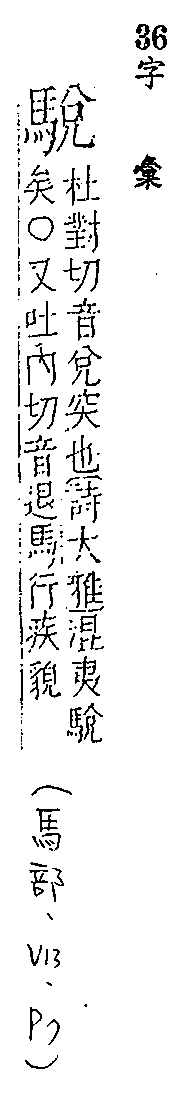 36
字彙
駾
杜對切音兌突也詩大雅混夷駾
矣○又吐內切音退馬行疾貌
(馬部、V13、P7)